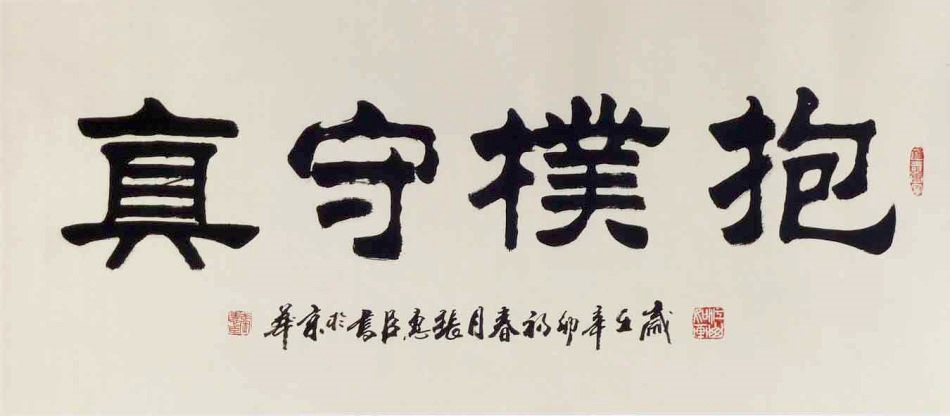 抱樸守真
歲在辛卯初春月張惠臣書於京華